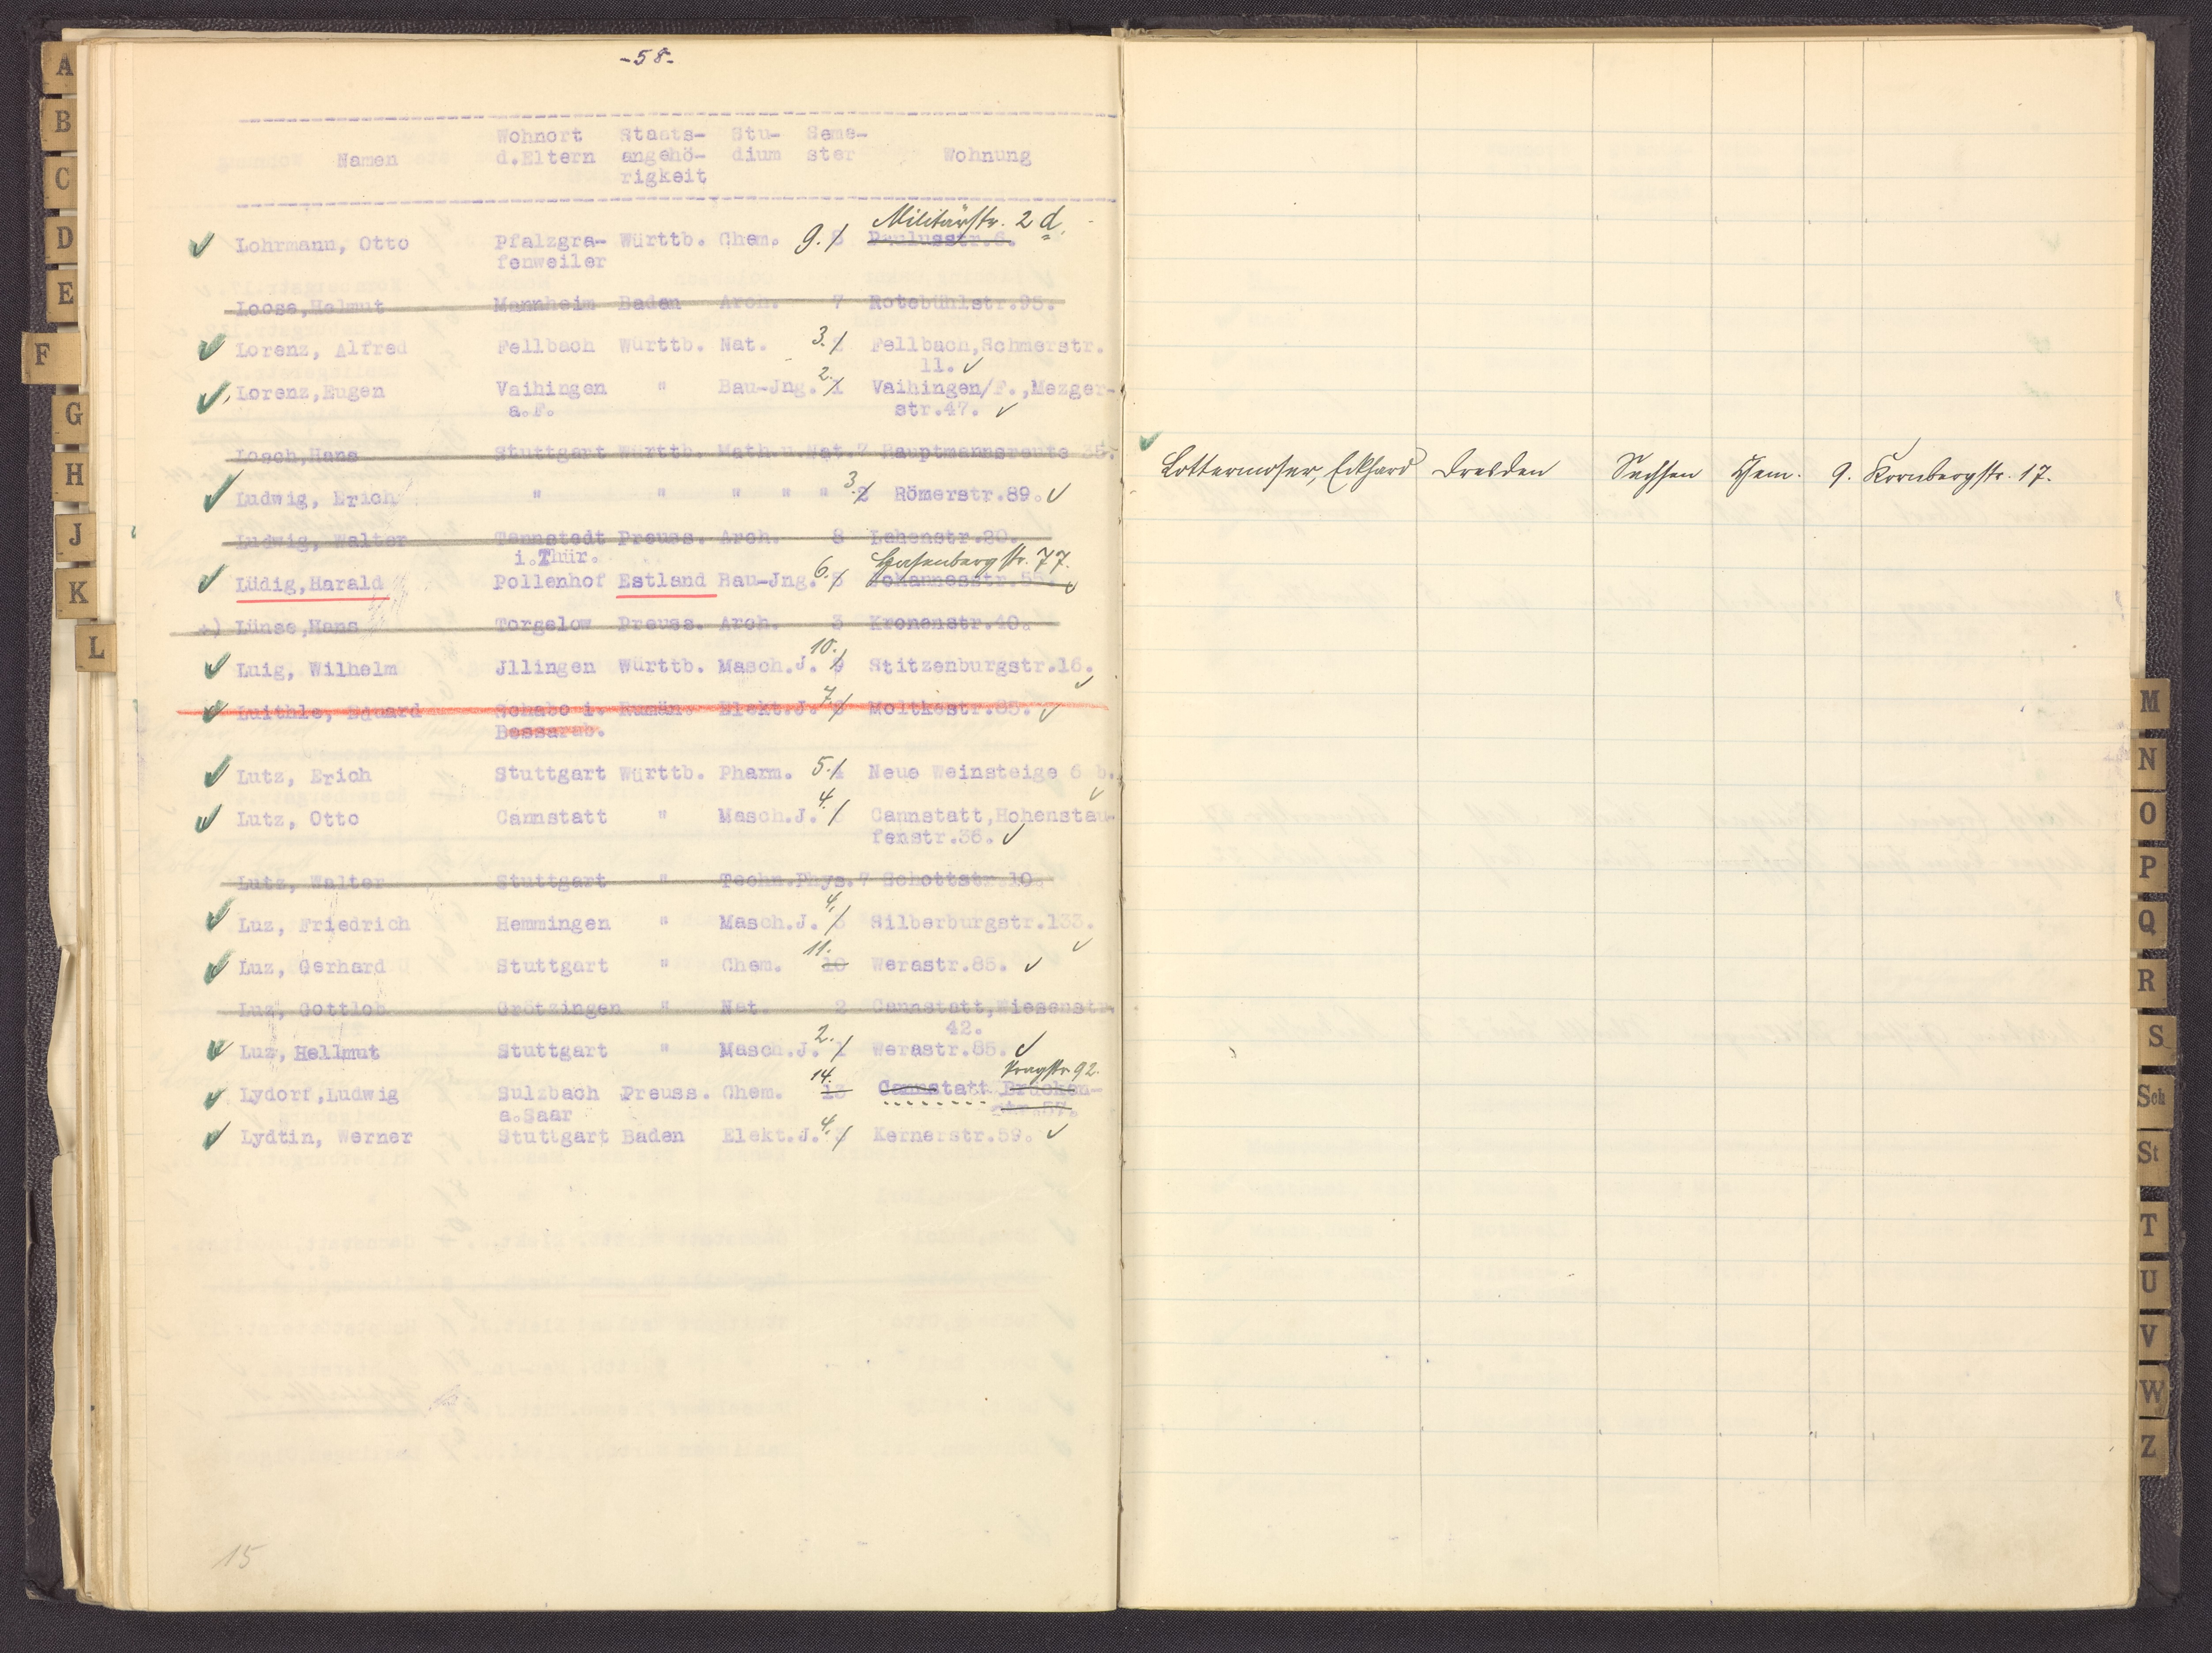 -58-
Namen Wohnort d.Eltern Staats-angehö-rigkeit Stu-dium Seme-ster Wohnung
Militärstr. 2 d.
Lohrmann, Otto Pfalzgra- Württb. Chem. 9. 8 Paulusstr.6.
fenweiler
Loose,Helmut Mannheim Baden Arch. 7 Rotebühlstr.95.
Lorenz, Alfred Fellbach Württb. Nat. 3. 2 Fellbach,Schmerstr.
11.
Lorenz,Eugen Vaihingen " Bau-Jng. 2. 1 Vaihingen/F.,Mezger-
a.F. str.47.
Losch,Hans Stuttgart Württb. Math.u.Nat.7 Hauptmannsreute 35.
Ludwig, Erich " " " " " 3. 2 Römerstr.89.
Ludwig, Walter Tennstedt Preuss. Arch. 8 Lehenstr.20.
i.Thür. Hasenbergstr. 77.
Lüdig,Harald Pollenhof Estland Bau-Jng. 6. 5 Johannesstr.55.
+) Lünse,Hans Torgelow Preuss. Arch. 3 Kronenstr.40.
Luig, Wilhelm Jllingen Württb. Masch.J. 10. 9 Stitzenburgstr.16.
Luithle, Eduard Schabo i. Rumän. Elekt.J. 7. Moltkestr.85.
Bessarab.
Lutz, Erich Stuttgart Württb. Pharm. 5. 4 Neue Weinsteige 6 b.
Lutz, Otto Cannstatt " Masch.J. 4. 3 Cannstatt,Hohenstau-
fenstr.36.
Lutz, Walter Stuttgart " Techn.Phys.7 Schottstr.10.
Luz, Friedrich Hemmingen " Masch.J. 4. 3 Silberburgstr.133.
Luz, Gerhard Stuttgart " Chem. 11. 10 Werastr.85.
Luz, Gottlob Grötzingen " Nat. 2 Cannstatt,Wiesenstr.
42.
Luz, Hellmut Stuttgart " Masch.J. 2. 1 Werastr.85.
Pragstr. 92.
Lydorf,Ludwig Sulzbach Preuss. Chem. 14. 13 Cannstatt,Brücken-
a.Saar str.57.
Lydtin, Werner Stuttgart Baden Elekt.J. 4. 3 Kernerstr.59.
15
Lottermoser, Eckhard Dresden Sachsen Chem. 9. Kornbergstr. 17.
A
B
C
D
E
F
G
H
J
K
L
M
N
O
P
Q
R
S
Sch
St
T
U
V
W
Z